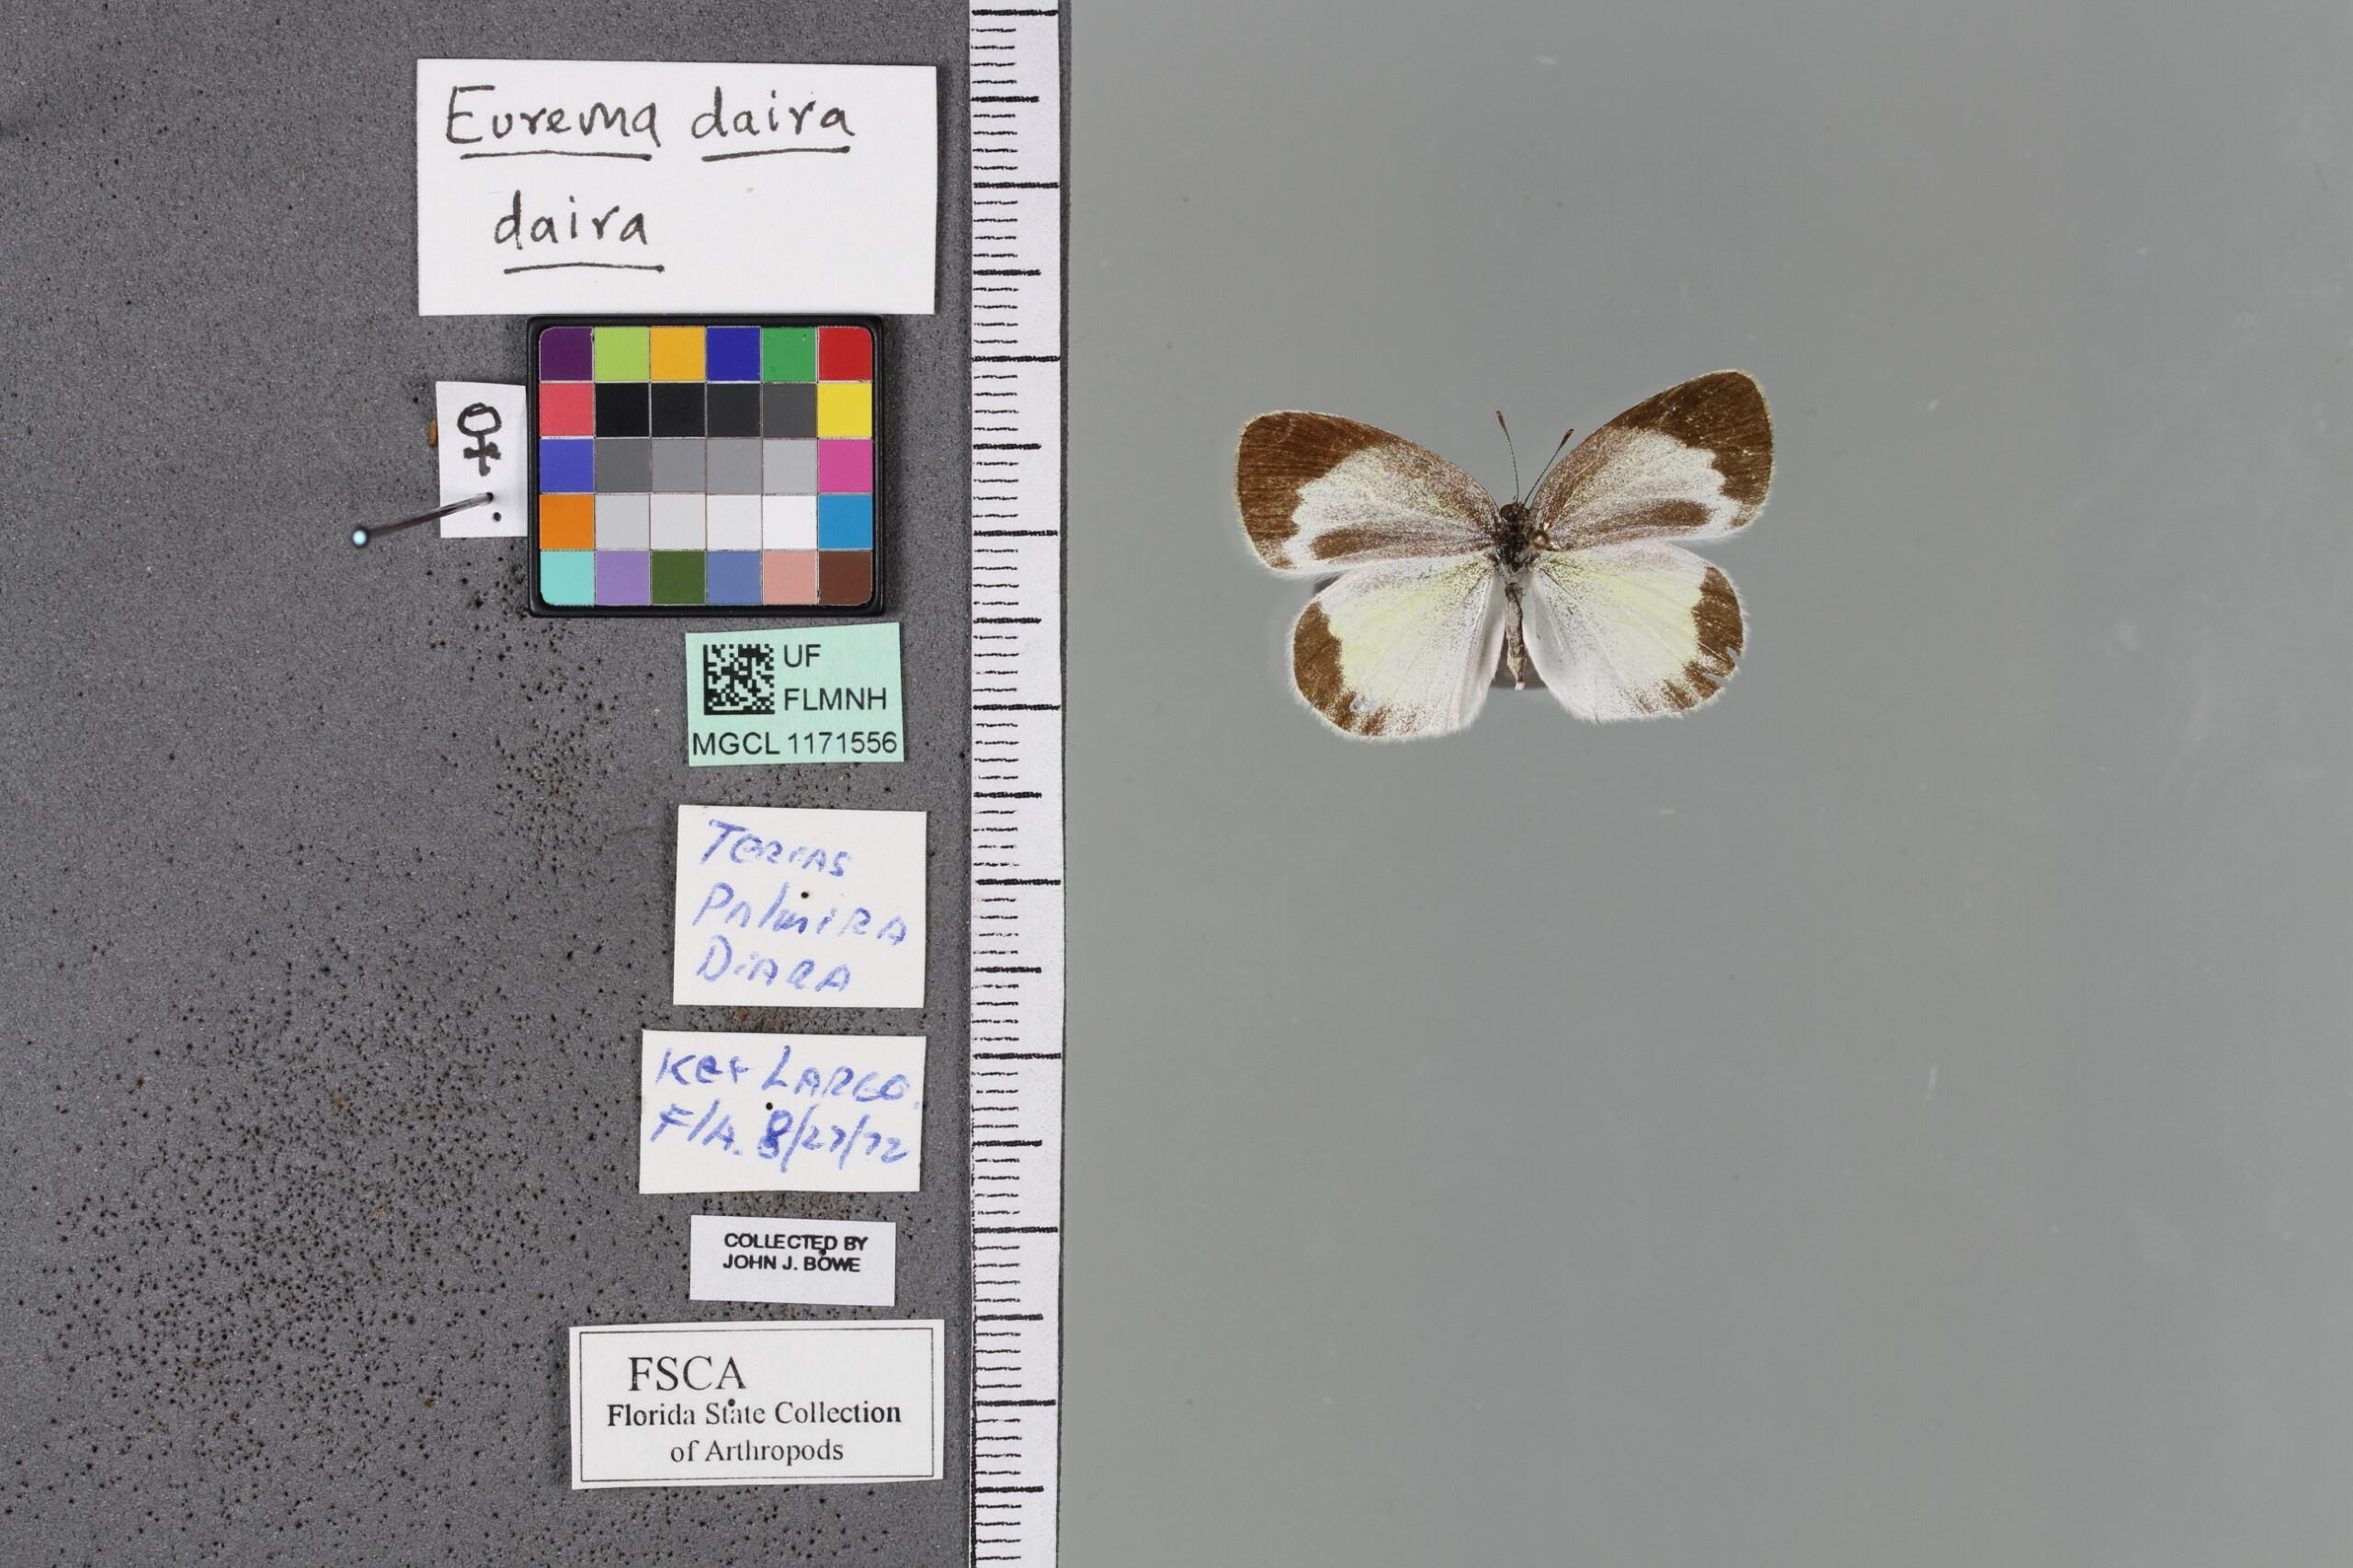 Eurema daira
daira
♀
UF
FLMNH
MGCL 1171556
Terias
Palmira
Diara
Key Largo.
Fla. 8/27/72
COLLECTED BY
JOHN J. BOWE
FSCA
Florida State Collection
of Arthropods